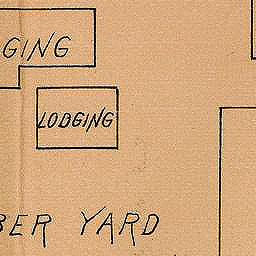 GING
LODGING
BER YARD